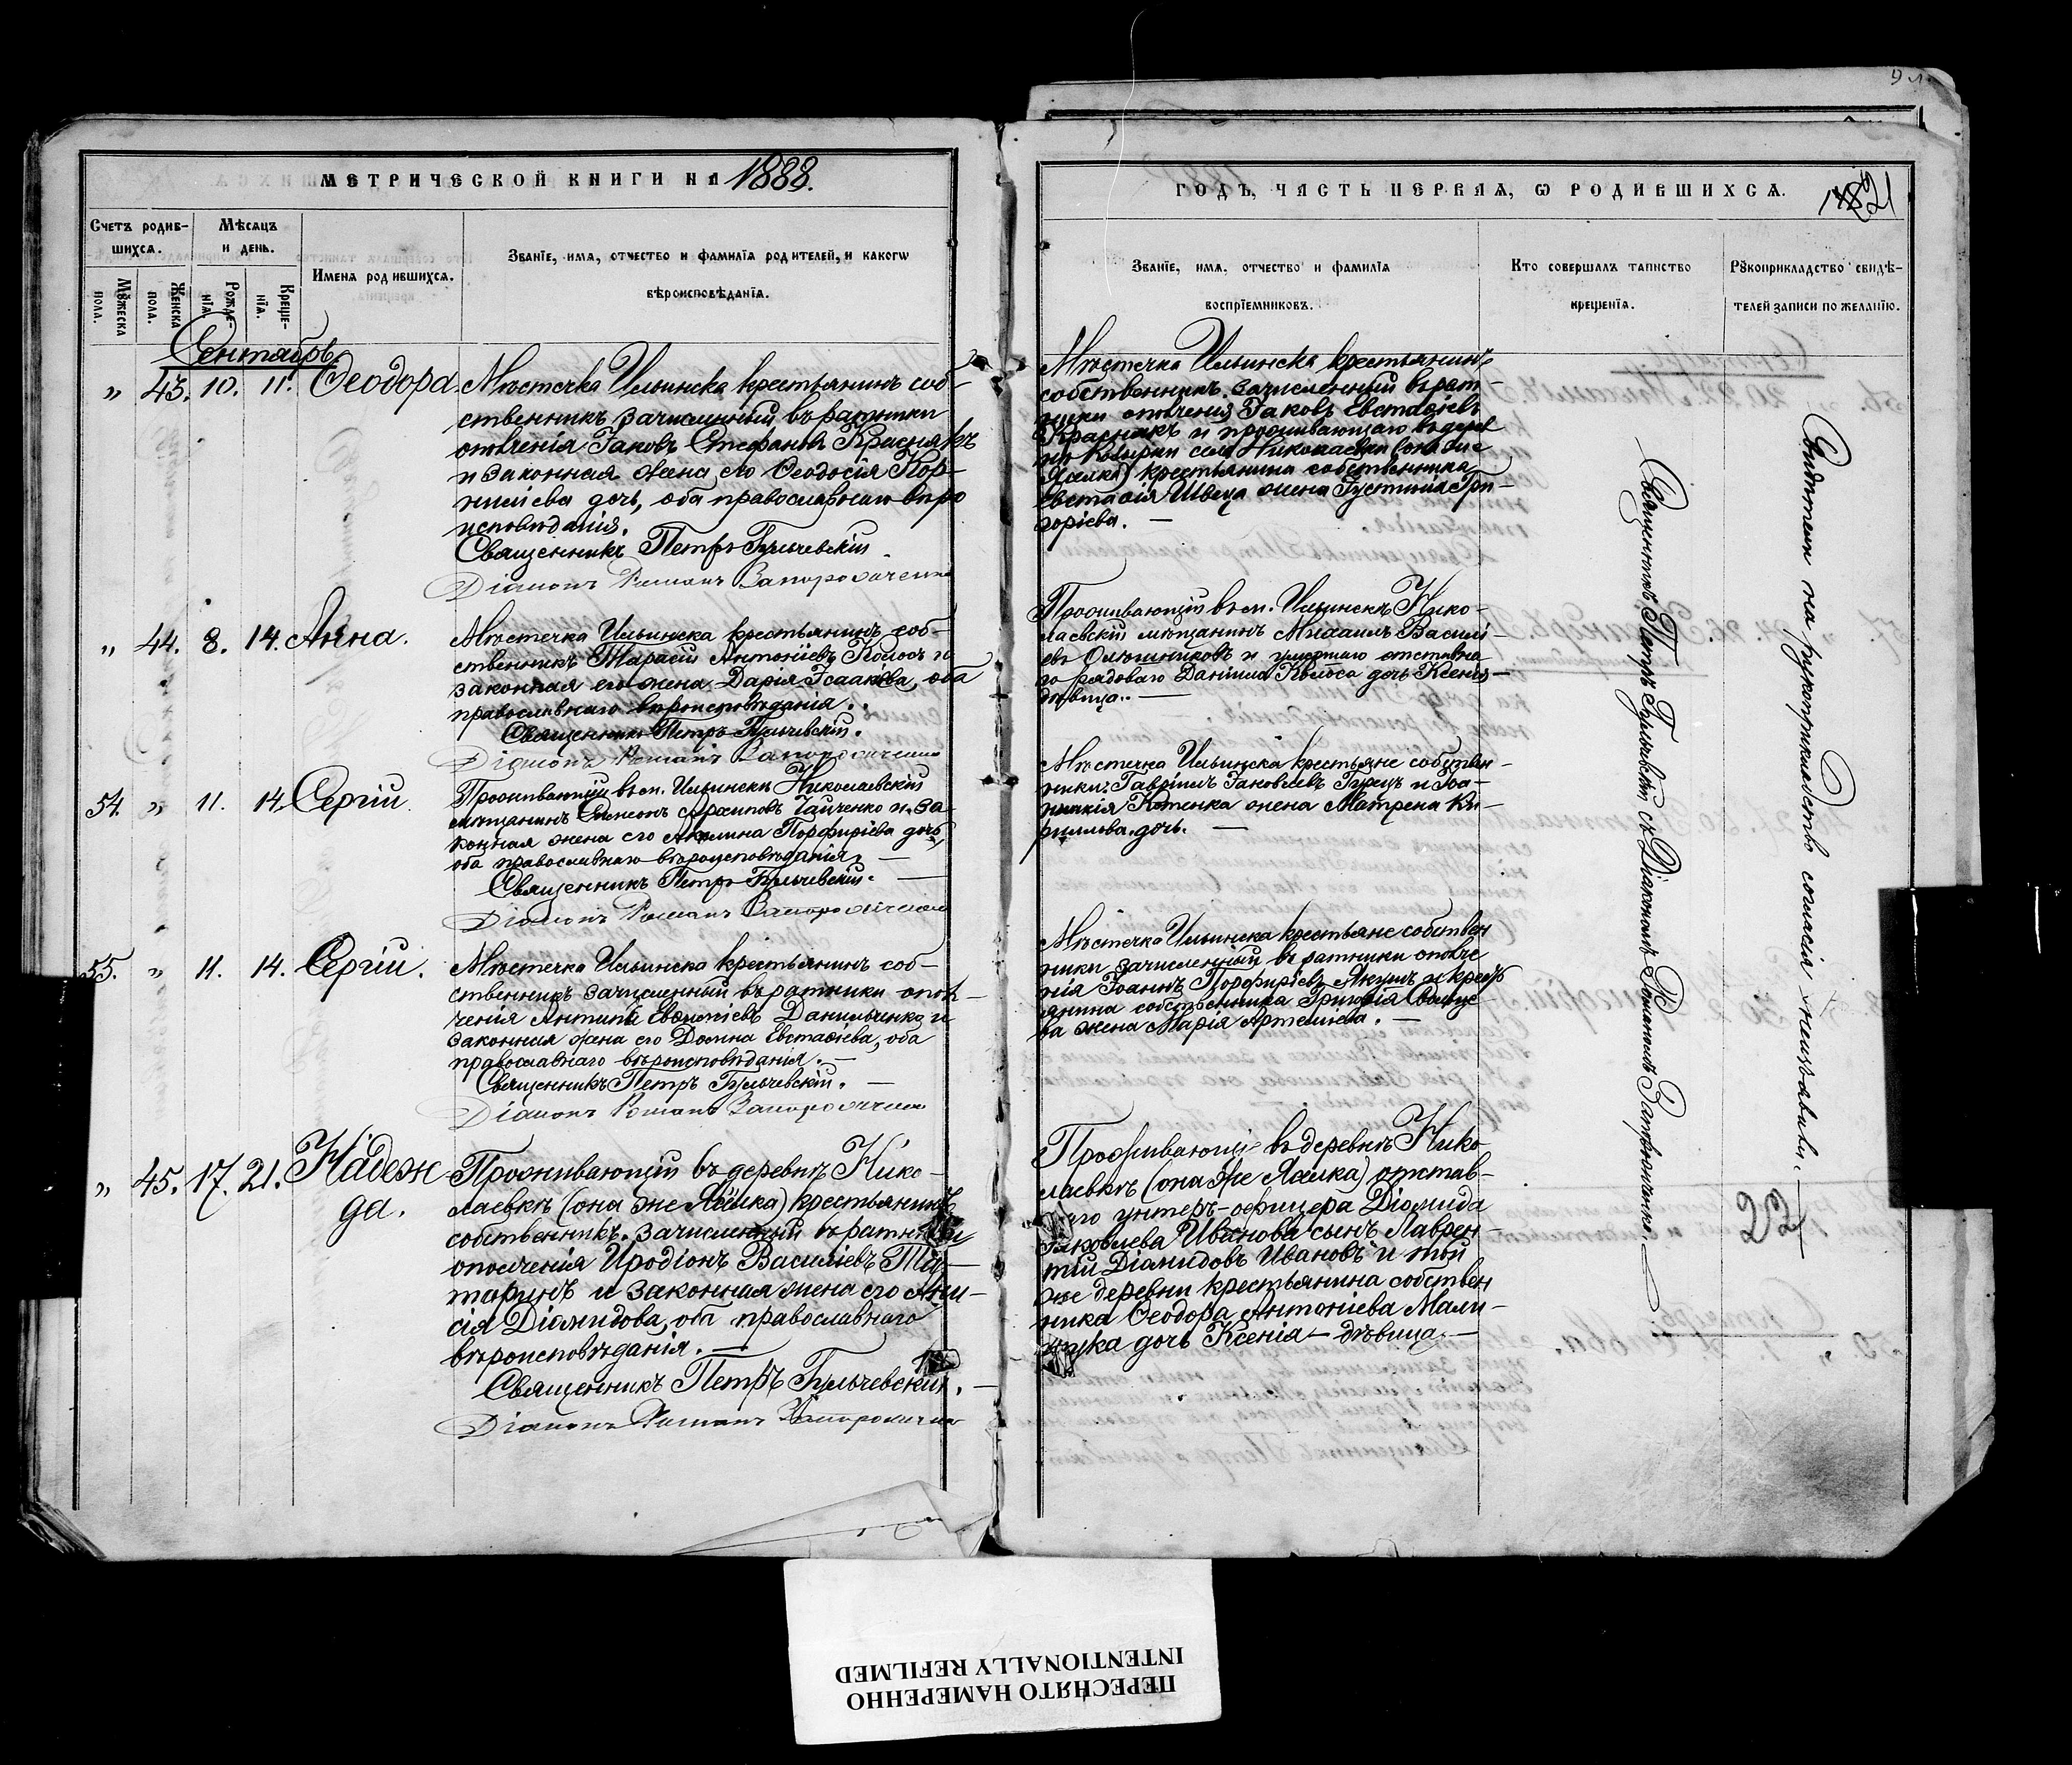 МЕТРИЧЕСКОЙ КНИГИ НА 1888.
Счетъ родив-
шихся.
Мѣсяцъ
и день.
Имена родившихся.
Званїе, имя, отчество и фамилїя родителей, и какогѡ
вѣроисповѣданїя.
Мꙋжеска
пола.
Женска
пола.
Рожде-
нїя.
Креще-
нїя.
Сентябрь
„ 43. 10. 11. Ѳеодора.
Мѣстечка Ильинска крестьянинъ соб-
ственникъ зачисленный въ ратники
ополченія Іаковъ Стефановъ Краснякъ
и законная жена его Ѳеодосія Кор-
ниліева дочь, оба православнаго вѣро
исповѣданія.
Священникъ Петръ Гульчевскій
Діаконъ Романъ Запорожченко
„ 44. 8. 14. Анна.
Мѣстечка Ильинска крестьянинъ соб-
ственникъ Тарасій Антоніевъ Колосъ и
законная его жена Дарія Исаакова, оба
православнаго вѣроисповѣданія.
Священникъ Петръ Гульчевскій.
Діаконъ Романъ Запорожченко
54. „ 11. 14. Сергій
Проживающій въ м. Ильинскѣ Николаевскій
мѣщанинъ Симеонъ Архиповъ Чайченко и за-
конная жена его Акилина Порфиріева дочь,
оба православнаго вѣроисповѣданія. —
Священникъ Петръ Гульчевскій. —
Діаконъ Романъ Запорожченко
55. „ 11. 14. Сергій.
Мѣстечка Ильинска крестьянинъ соб-
ственникъ зачисленный въ ратники опол-
ченія Антипъ Данильченко и
законная жена его Домна Евстаѳіева, оба
православнаго вѣроисповѣданія. —
Священникъ Петръ Гульчевскій. —
Діаконъ Романъ Запорожченко
„ 45. 17. 21. Надеж
да.
Проживающій въ деревнѣ Нико-
лаевкѣ (она же Яшка) крестьянинъ
собственникъ зачисленный въ ратники
ополченія Иродіонъ Василіевъ Та-
таринъ и законная жена его Ани-
сія Діомидова, оба православнаго
вѣроисповѣданія. —
Священникъ Петръ Гульчевскій. —
Діаконъ Романъ Запорожченко
ГОДЪ, ЧАСТЬ ПЕРВАЯ, Ѡ РОДИВШИХСЯ.
21
Званїе, имя, отчество и фамилїя
воспрїемниковъ.
Кто совершалъ таинство
крещенїя.
Рꙋкоприкладство свидѣ-
телей записи по желанїю.
Мѣстечка Ильинска крестьянинъ
собственникъ зачисленный въ рат-
ники ополченія Іаковъ Евстаѳіевъ
Краснякъ и проживающаго въ дерев
нѣ села Николаевки (она же
Яшка) крестьянина собственника
Евстаѳія Швеца жена Іустинія Гри-
горіева. —
Проживающій въ м. Ильинскѣ Нико-
лаевскій мѣщанинъ Михаилъ Василі-
евъ Олюшниковъ и умершаго отставна
го рядоваго Даніила Колоса дочь Ксенія —
дѣвица. —
Мѣстечка Ильинска крестьяне собствен-
ники: Гавріилъ Іаковлевъ Гурецъ и Іоа-
никія Котенка жена Матрена Ки-
риллова дочь. —
Мѣстечка Ильинска крестьяне собствен
ники зачисленный въ ратники ополче
нія Іоаннъ Порфиріевъ Якушъ и крест
янина собственника Григорія
ва жена Марія Артеміева. —
Проживающіе въ деревнѣ Нико
лаевкѣ (она же Яшка) отстав-
наго унтеръ-офицера Діомида
Яковлева Иванова сынъ Лаврен-
тій Діомидовъ Ивановъ и той
же деревни крестьянина собствен
ника Ѳеодора Антоніева Мали-
нука дочь Ксенія — дѣвица. —
Священникъ Петръ Гульчевскій съ Діакономъ Романомъ Запорожченко. —
Свидѣтели на рукоприкладство согласія не изъявили. —
23
ПЕРЕСНЯТО НАМЕРЕННО
INTENTIONALLY REFILMED